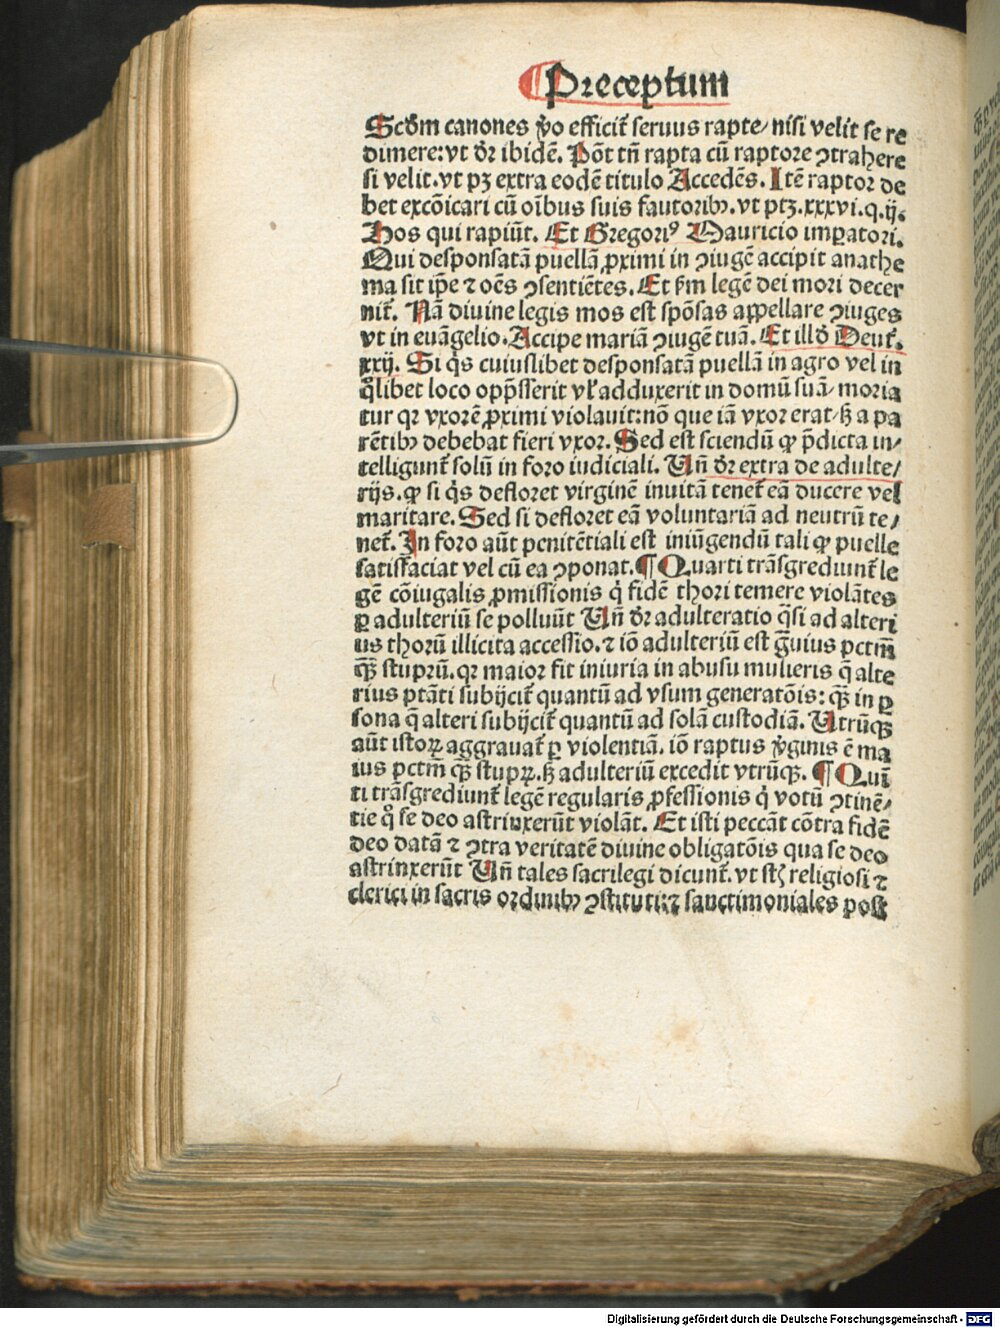 ¶ Preceptum
Scd̄m canones v̄o efficit᷑ seruus rapte/ nisi velit se re
dimere: vt dr̄ ibidē. Pōt tn̄ rapta cū raptore ꝯtrahere
si velit. vt pꝫ extra eodē titulo Accedēs. Itē raptor de
bet excōicari cū oībus suis fautoribꝰ. vt ptꝫ. xxxvi. q. ij.
Hos qui rapiūt. Et Gregoriꝰ Mauricio imꝑatori.
Qui desponsatā puellā ꝓximi in ꝯiugē accipit anathe
ma sit ip̄e ⁊ oēs ꝯsentiētes. Et ẜm legē dei mori decer
nit᷑. Nā diuine legis mos est spōsas appellare ꝯiuges
vt in euāgelio. Accipe mariā ꝯiugē tuā. Et illd̄ Deut᷑.
xxij. Si q̄s cuiuslibet desponsatā puellā in agro vel in
q̄libet loco opp̄sserit vl̓ adduxerit in domū suā/ moria
tur qr̄ vxorē ꝓximi violauit: nō que iā vxor erat/ ẜꝫ a pa
rētibꝰ debebat fieri vxor. Sed est sciendū ꝙ p̄dicta in/
telligunt᷑ solū in foro iudiciali. Vn̄ dr̄ extra de adulte/
rijs. ꝙ si q̄s defloret virginē inuitā tenet᷑ eā ducere vel
maritare. Sed si defloret eā voluntariā ad neutrū te/
net᷑. In foro aūt penitētiali est iniūgendū tali ꝙ puelle
satisfaciat vel cū ea ꝯponat. ¶ Quarti trāsgrediunt᷑ le
gē cōiugalis ꝓmissionis q̇ fidē thori temere violātes
ꝑ adulteriū se polluūt Vn̄ dr̄ adulteratio q̄si ad alteri
us thorū illicita accessio. ⁊ iō adulteriū est ḡuius pctm̄
qꝫ̄ stuprū. qr̄ maior fit iniuria in abusu mulieris q̄ alte
rius ptāti subijcit᷑ quantū ad vsum generatōis: qꝫ̄ in ꝑ
sona q̄ alteri subijcit᷑ quantū ad solā custodiā. Vtrūqꝫ
aūt istoꝝ aggrauat᷑ ꝑ violentiā. iō raptus v̄ginis ē ma
ius pctm̄ qꝫ̄ stupꝝ. ẜꝫ adulteriū excedit vtrūqꝫ. ¶ Quī
ti trāsgrediunt᷑ legē regularis ꝓfessionis q̇ votū ꝯtinē/
tie q̊ se deo astrinxerūt violāt. Et isti peccāt cōtra fidē
deo datā ⁊ ꝯtra veritatē diuine obligatōis qua se deo
astrinxerūt Vn̄ tales sacrilegi dicunt᷑. vt st̄ religiosi ⁊
clerici in sacris ordinibꝰ ꝯstituti: ⁊ sanctimoniales post
Digitalisierung gefördert durch die Deutsche Forschungsgemeinschaft - DFG